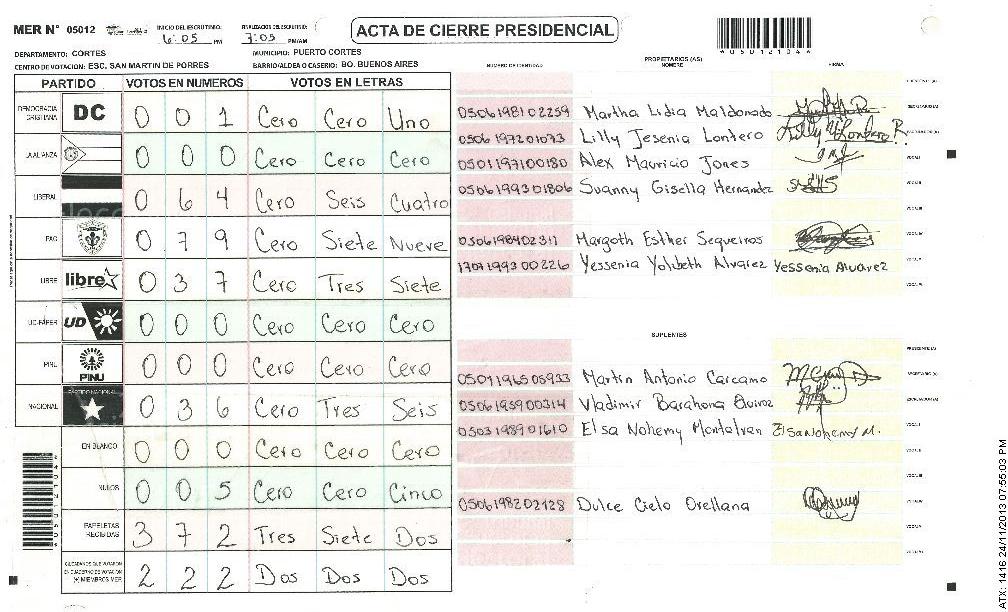 MER N° 05012 INICIO DEL ESCRUTINIO: 6:05 PM FINALIZACION DEL ESCRUTINIO: 7:05 PM/AM ACTA DE CIERRE PRESIDENCIAL
DEPARTAMENTO: CORTES MUNICIPIO: PUERTO CORTES
CENTRO DE VOTACION: ESC. SAN MARTIN DE PORRES BARRIO/ALDEA O CASERIO: BO. BUENOS AIRES
PARTIDO VOTOS EN NUMEROS VOTOS EN LETRAS
DEMOCRACIA CRISTIANA DC 0 0 1 Cero Cero Uno
LA ALIANZA 0 0 0 Cero Cero Cero
LIBERAL 0 6 4 Cero Seis Cuatro
PAC 0 7 9 Cero Siete Nueve
LIBRE libre 0 3 7 Cero Tres Siete
UD-FAPER UD 0 0 0 Cero Cero Cero
PINU PINU 0 0 0 Cero Cero Cero
NACIONAL PARTIDO NACIONAL 0 3 6 Cero Tres Seis
EN BLANCO 0 0 0 Cero Cero Cero
NULOS 0 0 5 Cero Cero Cinco
PAPELETAS RECIBIDAS 3 7 2 Tres Siete Dos
CIUDADANOS QUE VOTARON EN CUADERNO DE VOTACION (+) MIEMBROS MER 2 2 2 Dos Dos Dos
NUMERO DE IDENTIDAD PROPIETARIOS (AS) NOMBRE FIRMA
0506198102259 Martha Lidia Maldonado
0506197201073 Lilly Jesenia Lontero
0501197100180 Alex Mauricio Jones
0506199301806 Suanny Gisella Hernandez
0506198402311 Margoth Esther Sequeiros
1707199300226 Yessenia Yolibeth Alvarez Yessenia Alvarez
SUPLENTES
0501196505933 Martin Antonio Carcamo
0506195900314 Vladimir Barahona Quiroz
0503198901610 Elsa Nohemy Montalvan Elsa Nohemy M.
0506198202128 Dulce Cielo Orellana
ATX: 1416 24/11/2013 07:55:03 PM